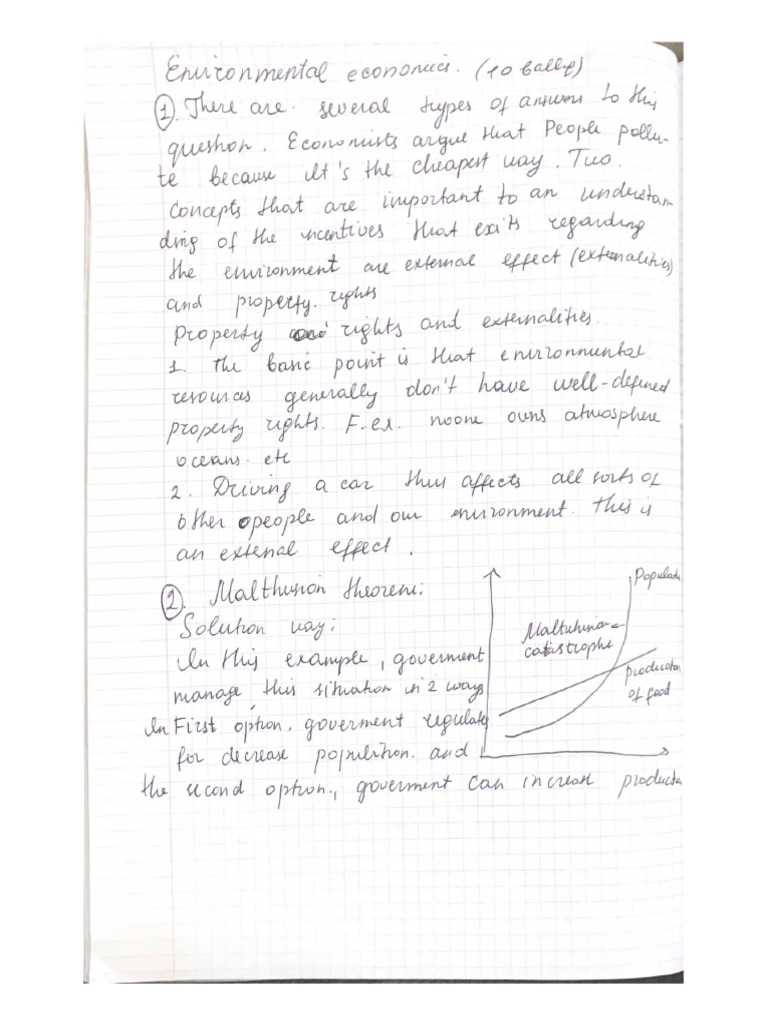 Environmental economics. (10 ballıq)
①. There are several types of answers to this
question. Economists argue that People pollu-
te because it's the cheapest way. Two
concepts that are important to an understan
ding of the incentives that exits regarding
the environment are external effect (externalities)
and property. rights
Property rights and externalities.
1. The basic point is that environmental
resources generally don't have well-defined
property rights. F.ex. noone owns atmosphere
oceans. etc
2. Driving a car thus affects all sorts of
other people and our environment. This is
an external effect.
②. Malthusion theorem:
Solution way:
In this example, goverment
manage this situation in 2 ways
In First option, goverment regulate
for decrease population. and
the second option, goverment can increase producti
Populati
Maltuhina
catastrophe
production
of food